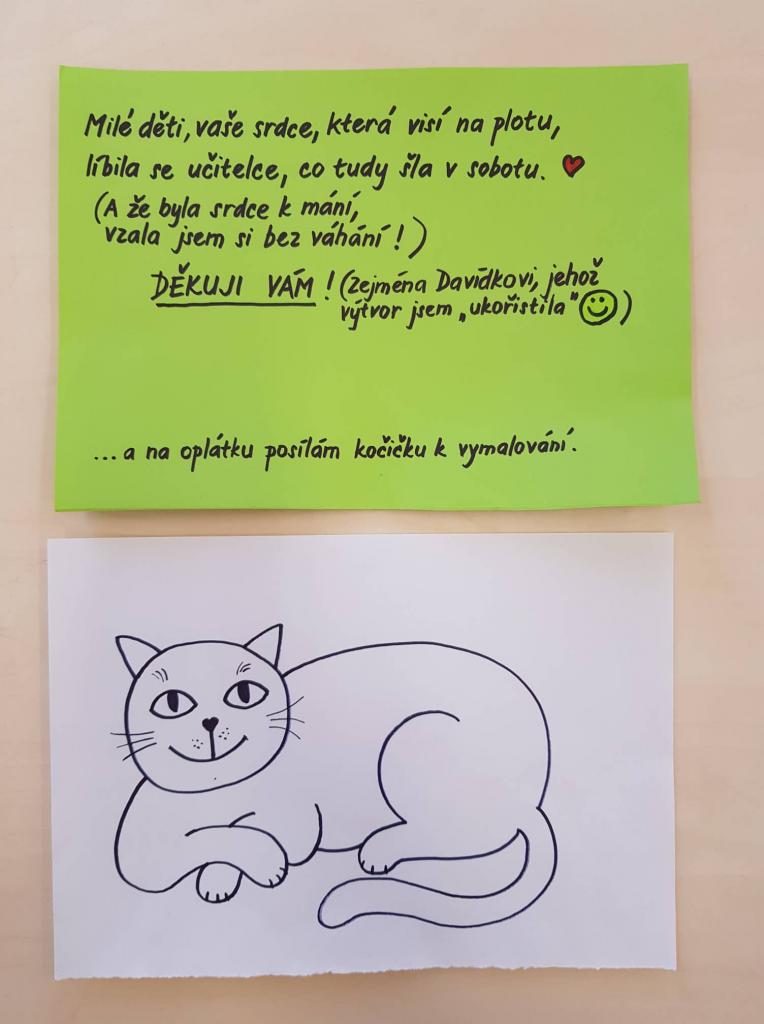 Milé děti, vaše srdce, která visí na plotu,
líbila se učitelce, co tudy šla v sobotu. ♥
(A že byla srdce k mání,
vzala jsem si bez váhání!)
DĚKUJI VÁM! (Zejména Davídkovi, jehož
výtvor jsem „ukořistila" ☺)
...a na oplátku posílám kočičku k vymalování.